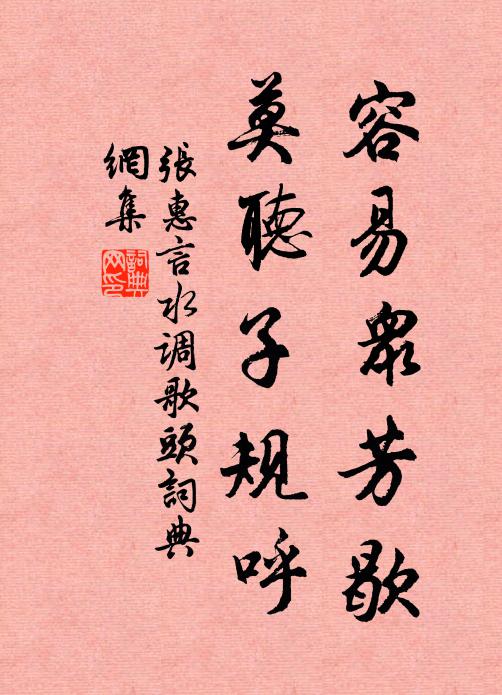 容易衆芳歇
莫聽子規呼
張惠言水调歌頭詞典
網集
詞典
网印